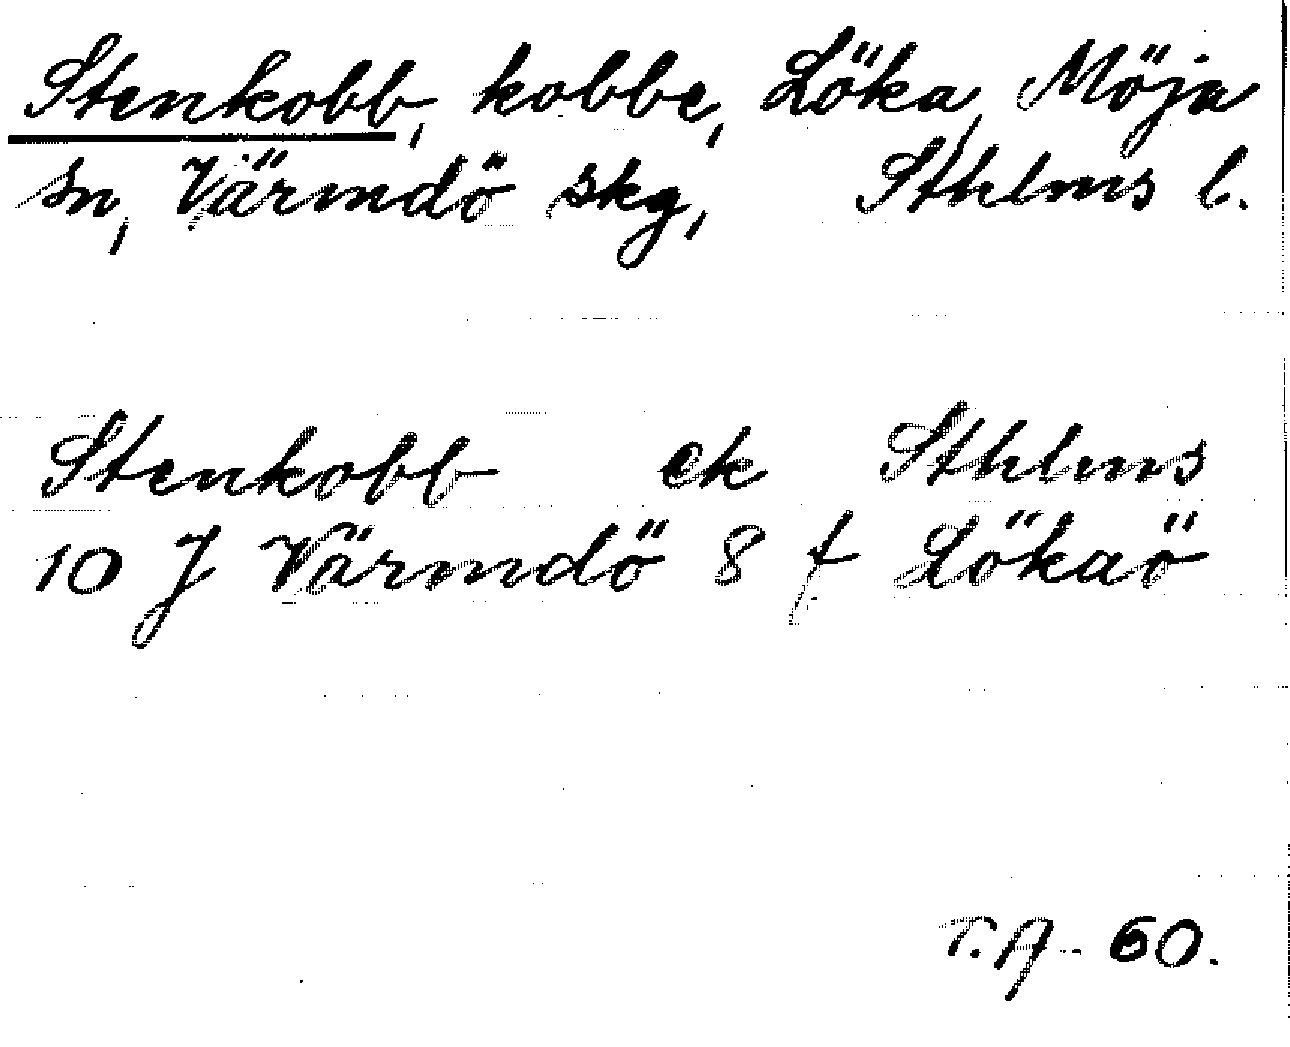 Stenkobb, kobbe, Löka, Möja
sn, Värmdö skg, Sthlms l.
Stenkobb ek Sthlms
10 J Värmdö 8 f Lökaö
T.A. 60.